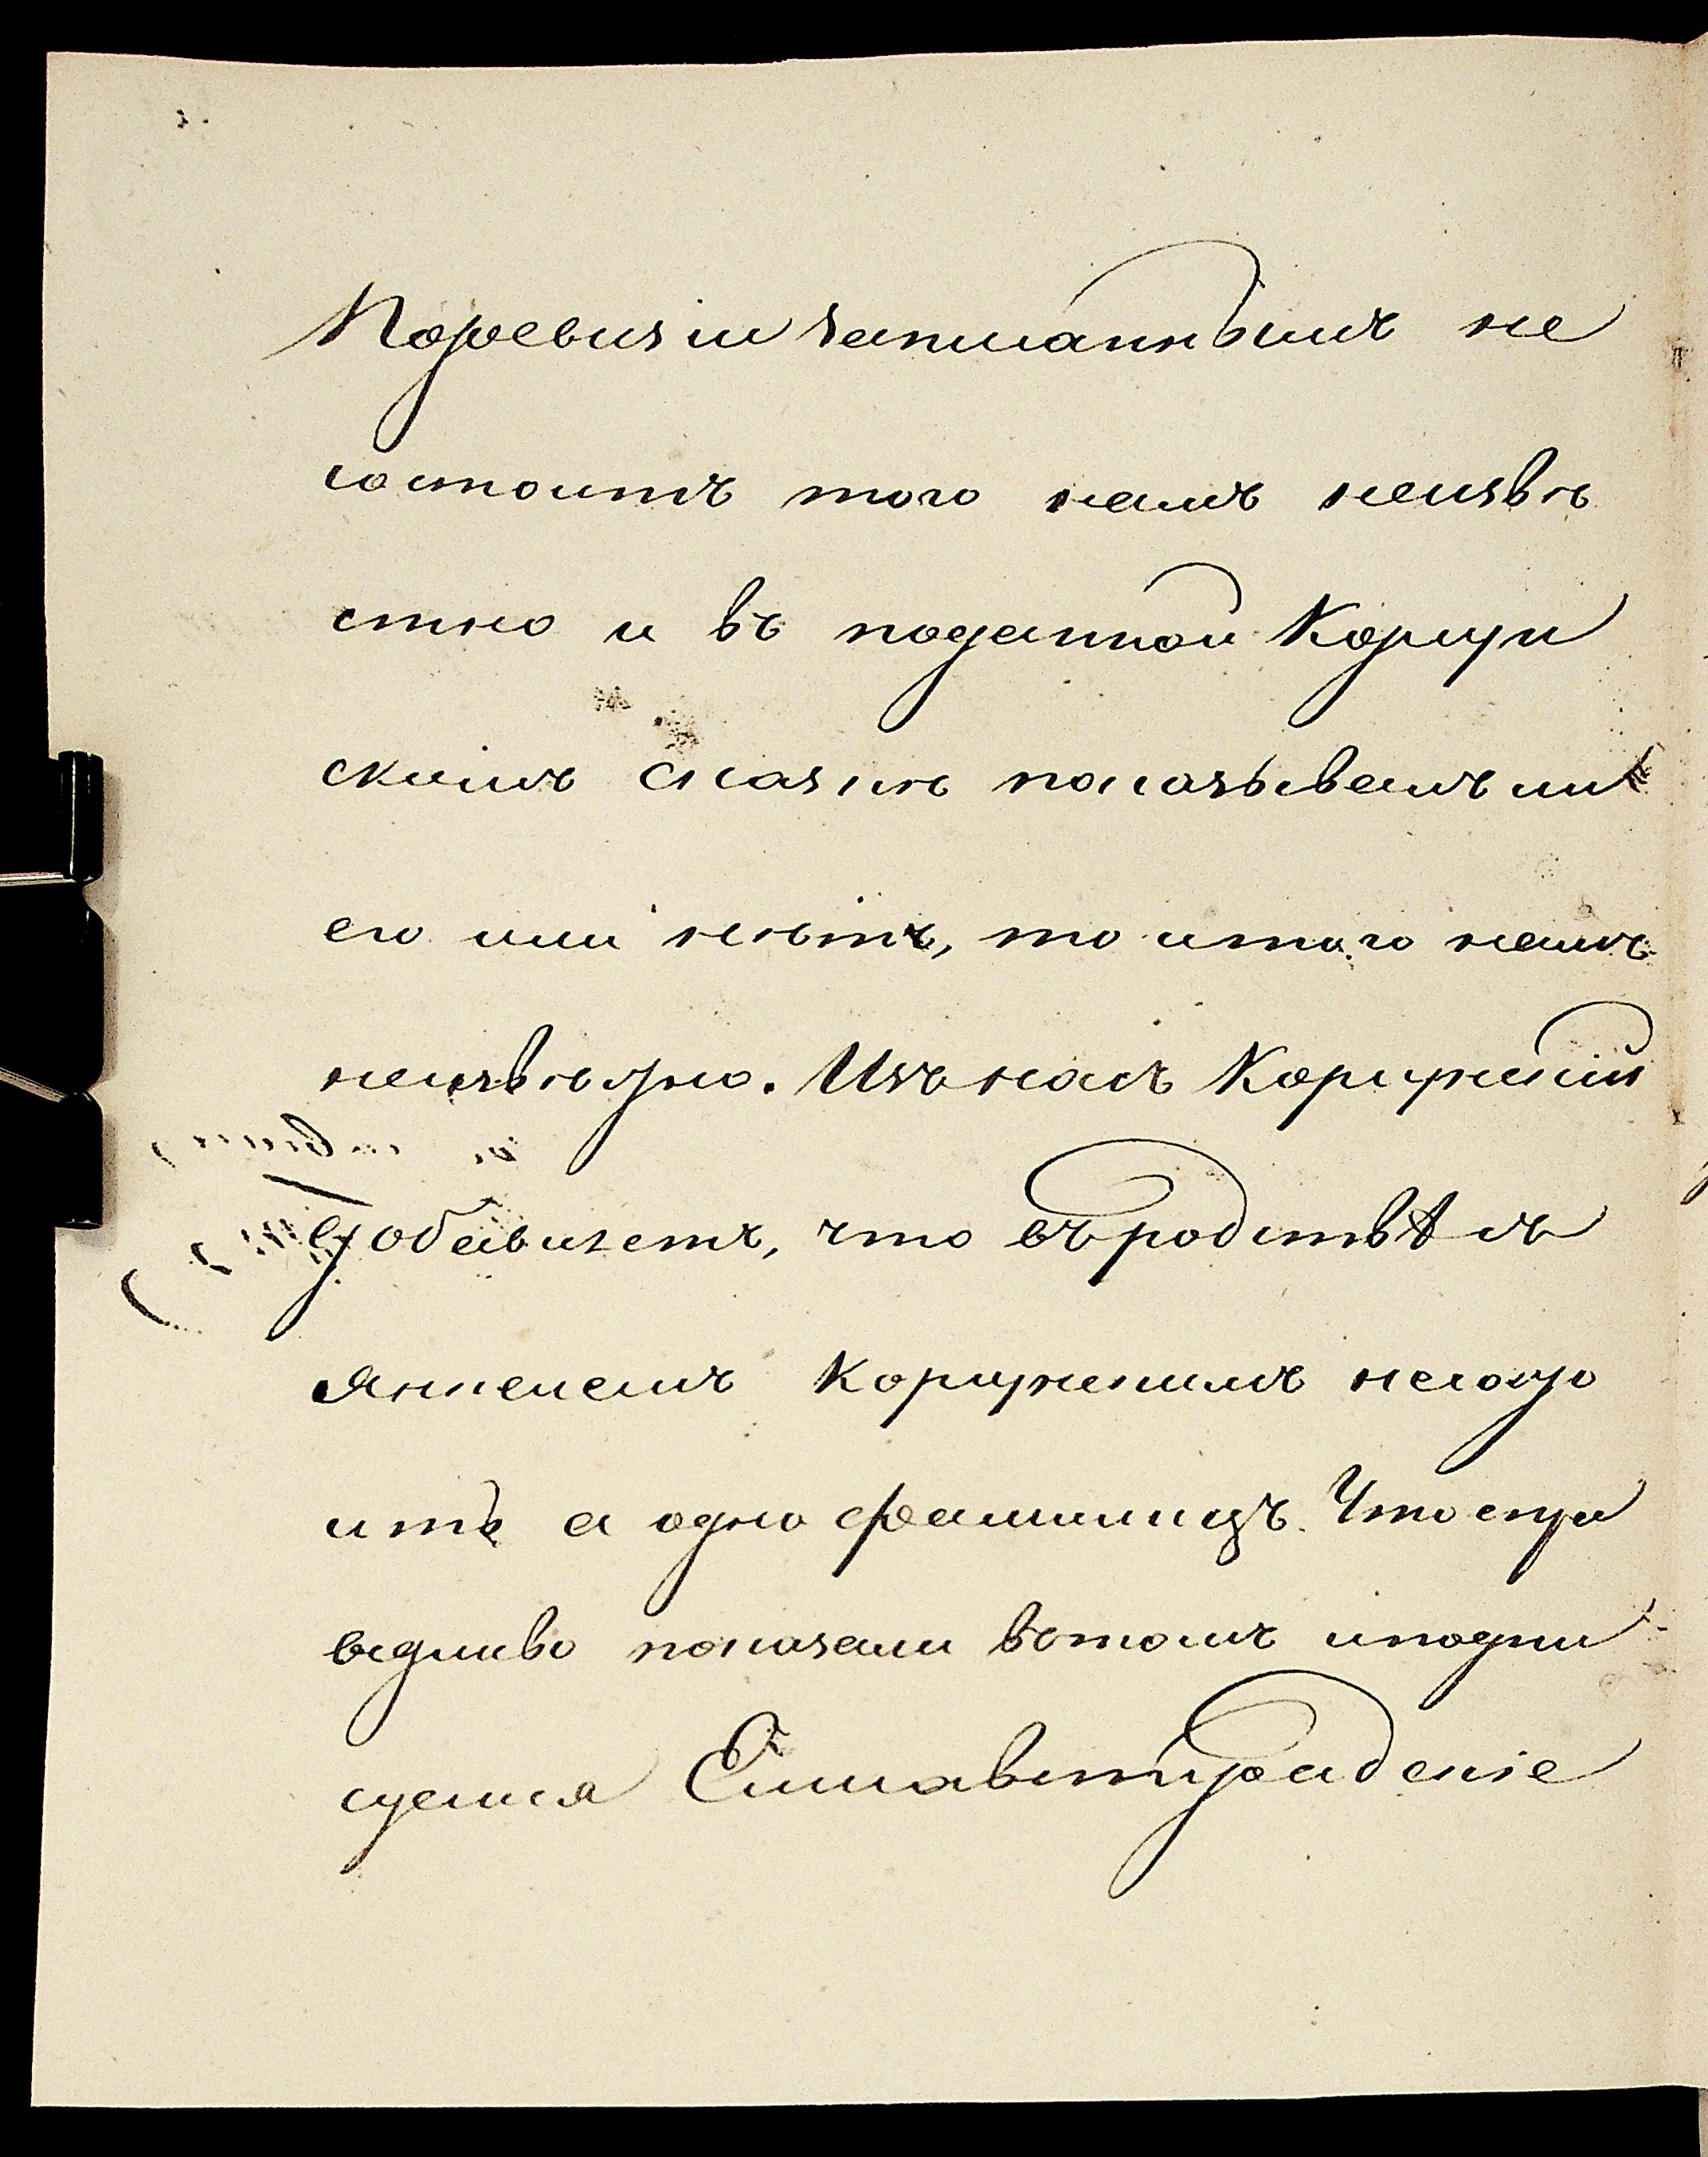 По ревизіи записаннымъ не
состоитъ того намъ неизвѣ
стно и въ поданной Коржун
скимъ сказкѣ показываемъ ли
его или нѣтъ, то и того намъ
неизвѣстно. Изъ насъ Коржускій
добавилетъ, что въ родствѣ съ
Янкелемъ Коржускимъ несосто
итъ а одно фамилицъ. Что спра
ведливо показали въ томъ и подпи
суемся Елисаветградскіе